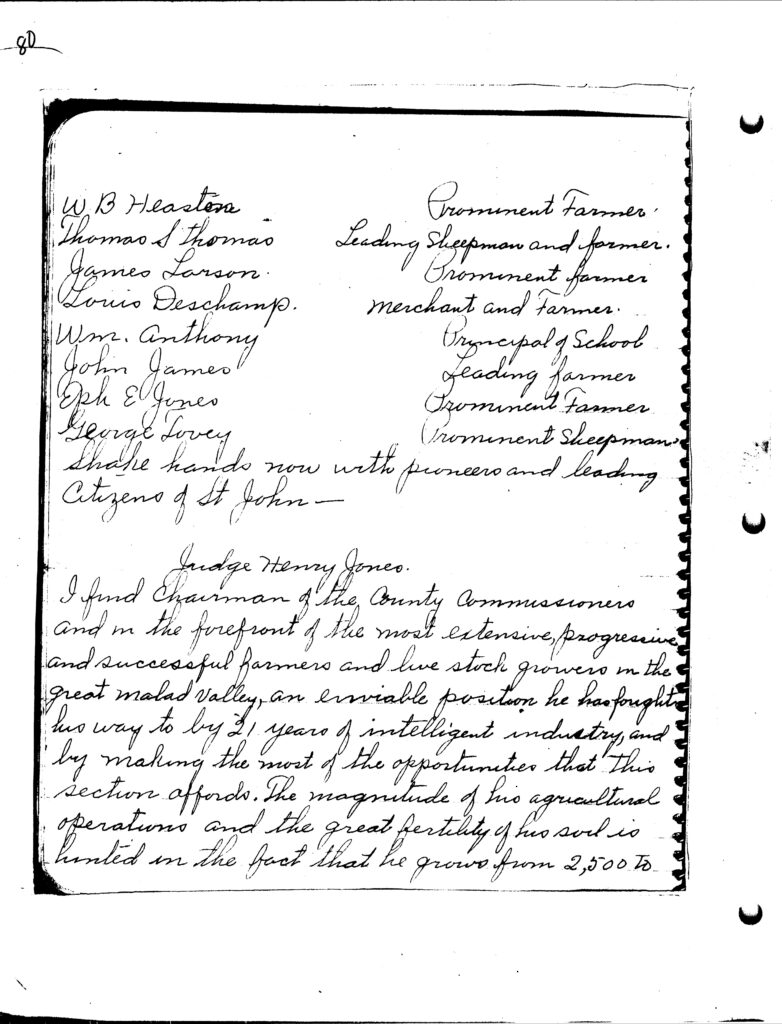 80
W B Heaston Prominent Farmer.
Thomas S Thomas Leading Sheepman and farmer.
James Larson. Prominent farmer
Louis Deschamp. Merchant and Farmer.
Wm. Anthony Principal of School
John James Leading farmer
Eph E Jones Prominent Farmer
George Tovey Prominent Sheepman.
Shake hands now with pioneers and leading
Citizens of St John —
Judge Henry Jones.
I find Chairman of the County Commissioners
and in the forefront of the most extensive, progressive
and successful farmers and live stock growers in the
great Malad Valley, an enviable position he has fought
his way to by 21 years of intelligent industry, and
by making the most of the opportunities that this
section affords. The magnitude of his agricultural
operations and the great fertility of his soil is
hinted in the fact that he grows from 2,500 to